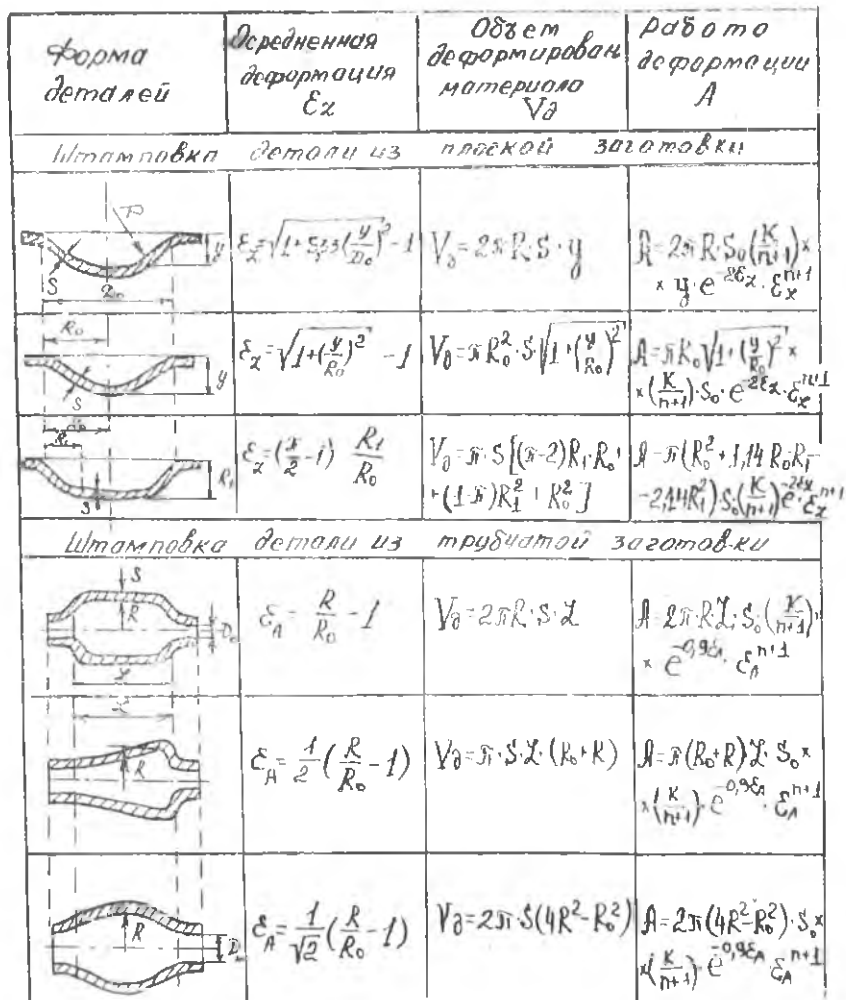 Форма
деталей
Осредненная
деформация
εz
Объем
деформирован
материала
Vд
Работа
деформации
A
Штамповка детали из плоской заготовки
S
D₀
y
Vд=2πR·S·y
A=2πR·S₀(K/n+1)×
×y·e^-2εz·εz^n+1
R₀
S
y
εz=√1+(y/R₀)² -1
Vд=πR₀²·S√1+(y/R₀)²
A=πR₀√1+(y/R₀)²×
×(K/n+1)·S₀·e^-2εz·εz^n+1
R₁
S
R₁
εz=(π/2-1) R₁/R₀
Vд=π·S[(π-2)R₁·R₀+
+(1-π)R₁²+R₀²]
A=π(R₀²+1,14R₀R₁-
-2,14R₁²)S₀(K/n+1)e^-2εz·εz^n+1
Штамповка детали из трубчатой заготовки
S
R
D₀
L
εA=R/R₀-1
Vд=2πR·S·L
A=2π·R·L·S₀·(K/n+1)·
×e^-0,9εA·εA^n+1
L
R
εA=1/2(R/R₀-1)
Vд=π·S·L·(R₀+R)
A=π(R₀+R)L·S₀×
×(K/n+1)·e^-0,9εA·εA^n+1
R
D₀
εA=1/√2(R/R₀-1)
Vд=2π·S(4R²-R₀²)
A=2π(4R²-R₀²)·S₀×
×(K/n+1)·e^-0,9εA·εA^n+1